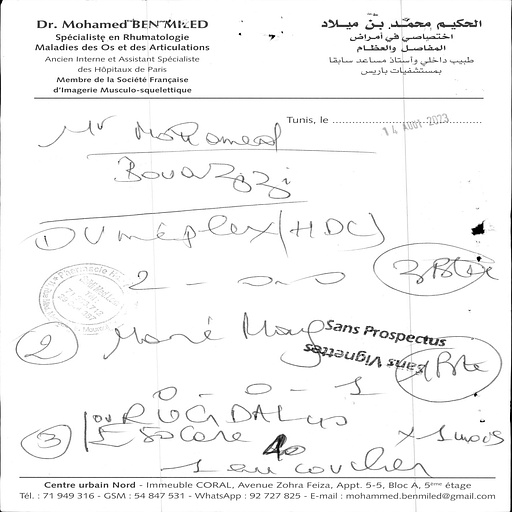 Dr. Mohamed BEN MILED
Spécialiste en Rhumatologie
Maladies des Os et des Articulations
Ancien Interne et Assistant Spécialiste
des Hôpitaux de Paris
Membre de la Société Française
d'Imagerie Musculo-squelettique
الحكيم محمّد بن ميلاد
اختصاصي في أمراض
المفاصل والعظام
طبيب داخلي وأستاذ مساعد سابقا
بمستشفيات باريس
Tunis, le
14 AOUT 2023
Mr Mohamed
Bouazizi
(HDC)
2 - 0 - 0
2
Sans Prospectus
Sans Vignettes
0 - 0 - 1
3
ou
Esocare 40
x 1 mois
1 au coucher
Centre urbain Nord - Immeuble CORAL, Avenue Zohra Feiza, Appt. 5-5, Bloc A, 5ème étage
Tél. : 71 949 316 - GSM : 54 847 531 - WhatsApp : 92 727 825 - E-mail : mohammed.benmiled@gmail.com